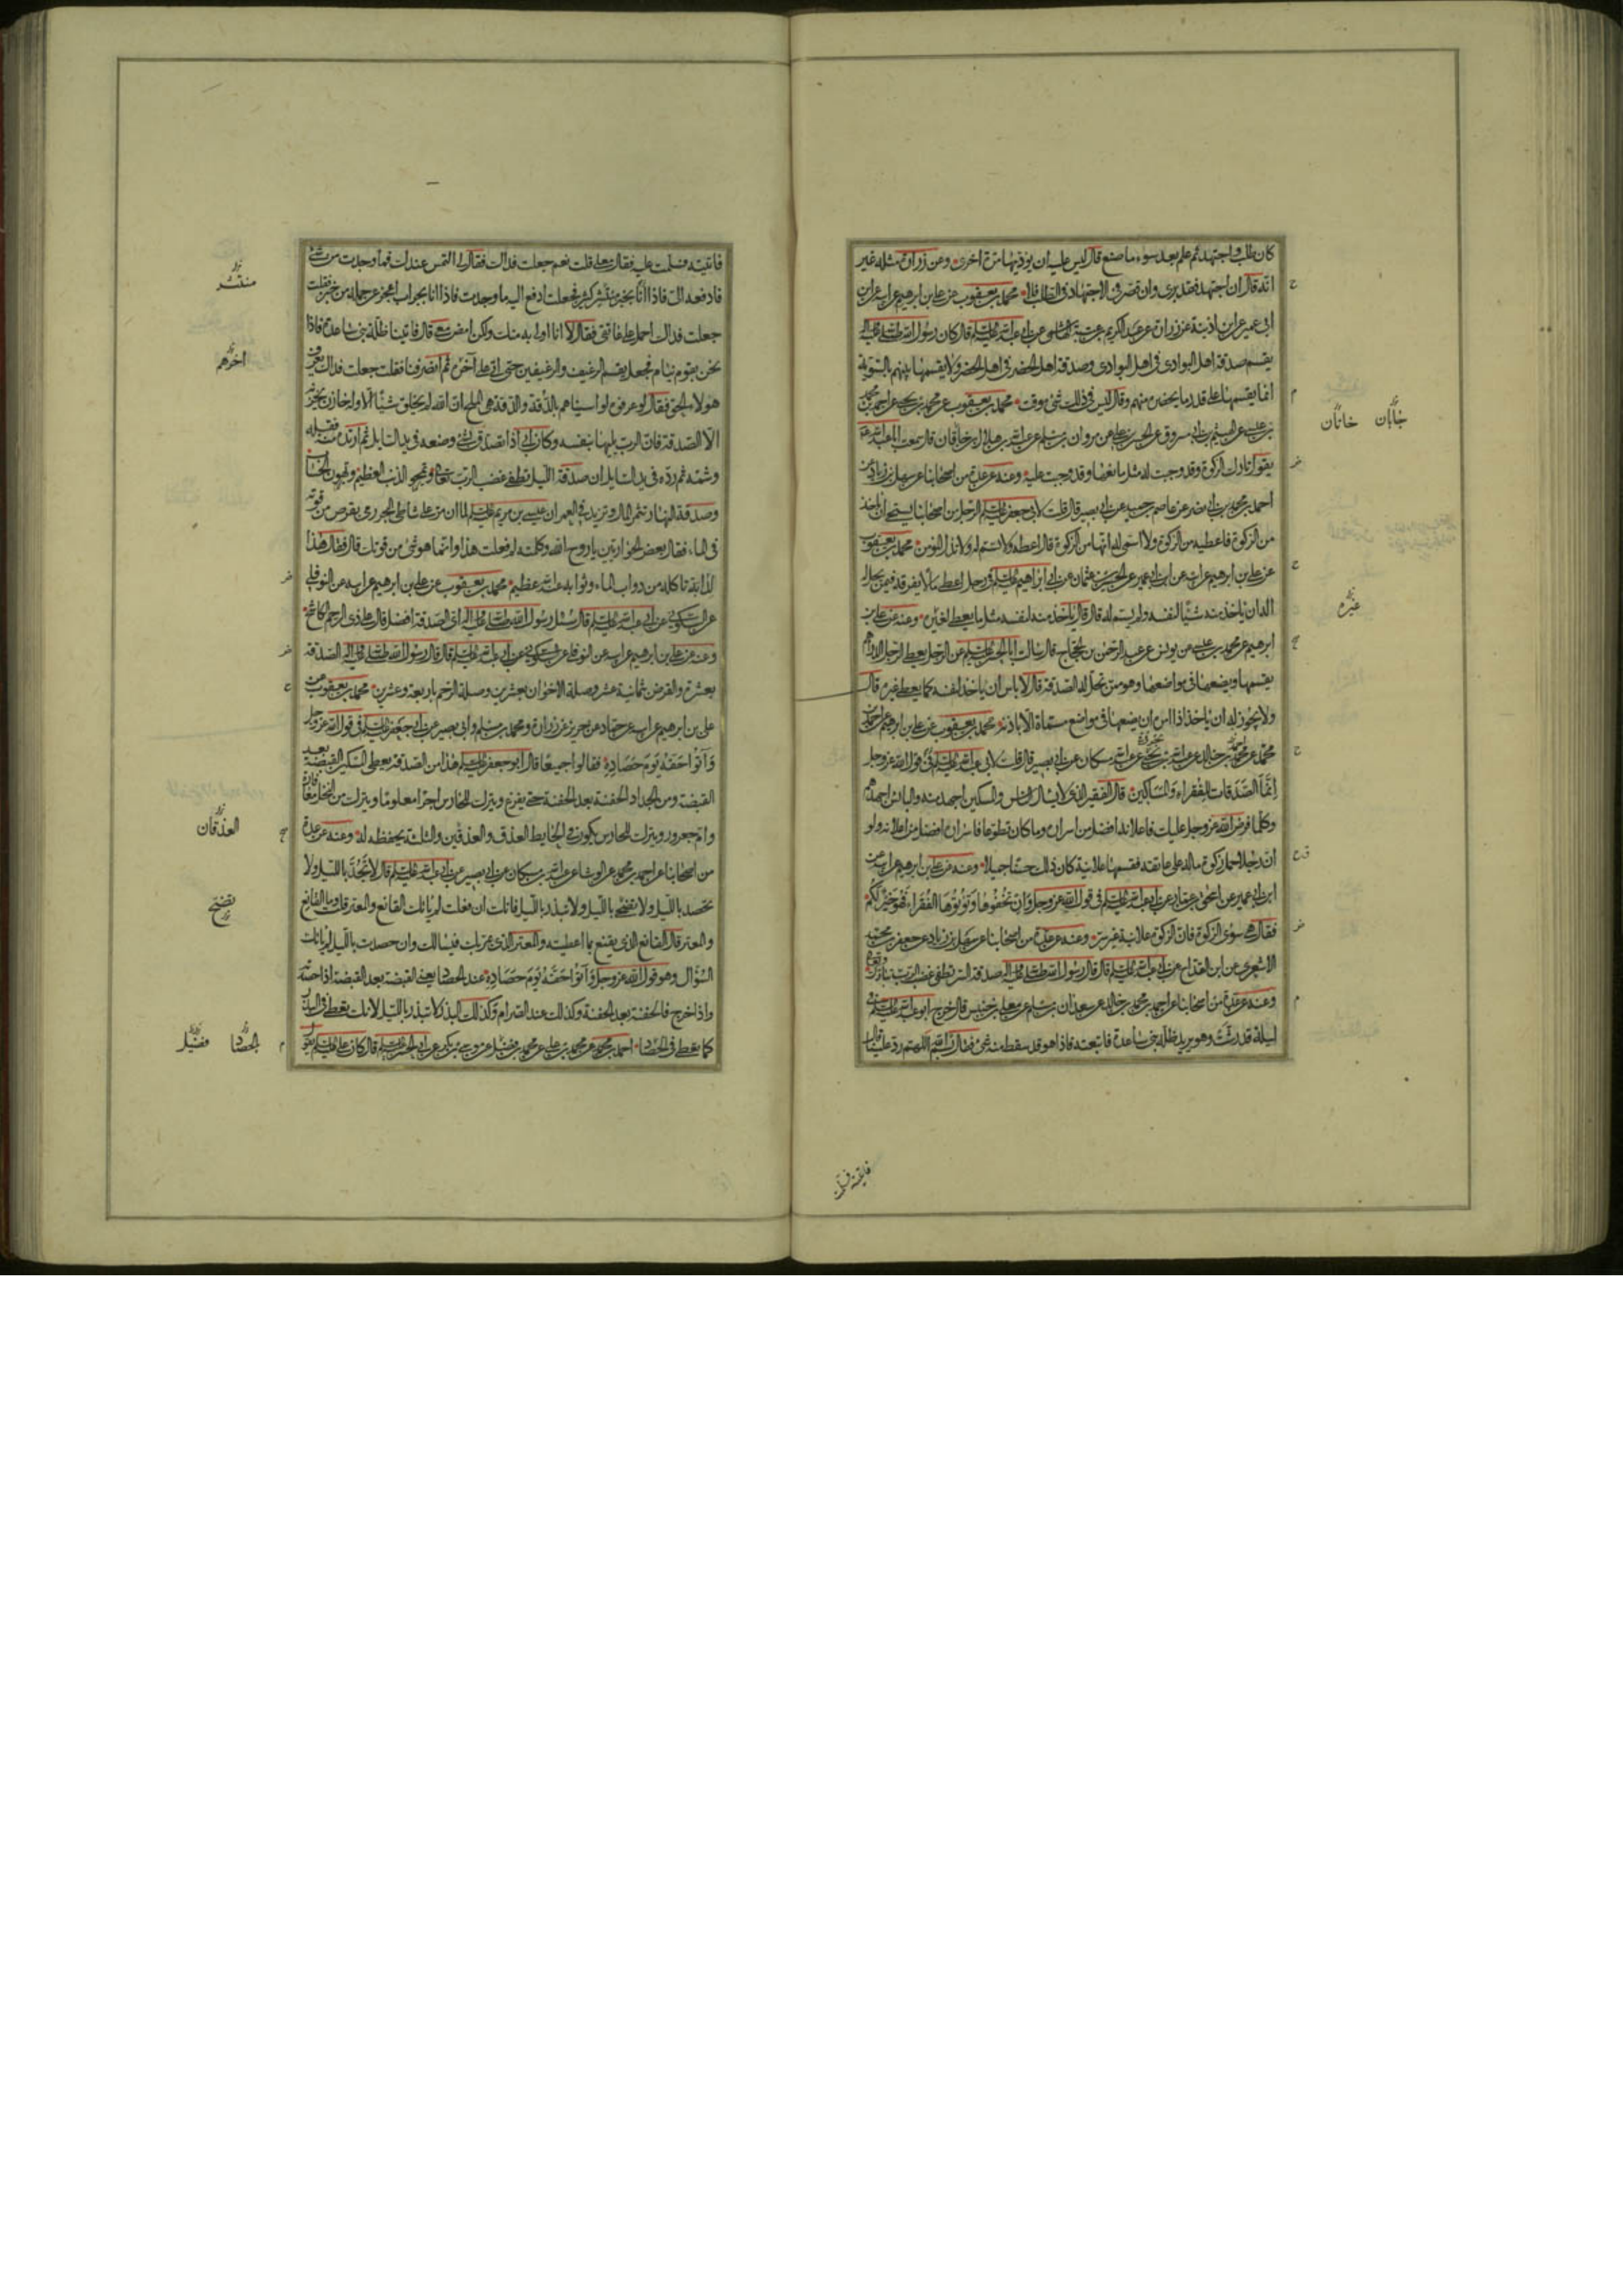 كان طلب واجتهد ثم علم بعد سوء ما صنع قال ليس عليه ان يؤديها مرة اخرى وعن زرارة مثله غير
انه قال ان اجتهد فقد برئ وان قصر في الاجتهاد في الطلب فلا محمد بن يعقوب عن علي بن ابراهيم عن ابيه عن ابن
ابي عمير عن ابن اذينة عن زرارة عن عبد الكريم بن عتبة الهاشمي عن ابي عبد الله عليه السلم قال كان رسول الله صلى الله عليه واله
يقسم صدقة اهل البوادي في اهل البوادي وصدقة اهل الحضر في اهل الحضر ولا يقسمها بينهم بالسوية
انما يقسمها على قدر ما يحضره منهم وقال ليس في ذلك شئ موقت محمد بن يعقوب عن محمد بن يحيى عن احمد بن محمد
بن عيسى عن الهيثم بن ابي مسروق عن الحسن بن علي عن مروان بن مسلم عن عبد الله بن هلال بن خاقان قال سمعت ابا عبد الله
يقول تارك الزكوة وقد وجبت له مثل مانعها وقد وجبت عليه وعنه عن عدة من اصحابنا عن سهل بن زياد عن
احمد بن محمد بن ابي نصر عن عاصم بن حميد عن ابي بصير قال قلت لابي جعفر عليه السلم الرجل من اصحابنا يستحي ان ياخذ
من الزكوة فاعطيه من الزكوة ولا اسمي له انها من الزكوة قال اعطه ولا تسم له ولا تذل المؤمن محمد بن يعقوب
عن علي بن ابراهيم عن ابيه عن ابن ابي عمير عن الحسين بن عثمان عن ابي ابراهيم عليه السلم في رجل اعطي مالا يفرقه فيمن يحل له
اله ان ياخذ منه شيئا لنفسه ولم يسم له قال قال ياخذ منه لنفسه مثل ما يعطي لغيره وعنه عن علي بن
ابرهيم عن محمد بن عيسى عن يونس عن عبد الرحمن بن الحجاج قال سالت ابا الحسن عليه السلم عن الرجل يعطي الرجل الدراهم
يقسمها ويضعها في مواضعها وهو ممن تحل له الصدقة قال لا باس ان ياخذ لنفسه كما يعطي غيره قال
ولا يجوز له ان ياخذ اذا امره ان يضعها في مواضع مسماة الا باذنه محمد بن يعقوب عن علي بن ابرهيم عن احمد بن
محمد عن محمد بن خالد عن عبد الله بن يحيى عن عبد الله بن مسكان عن ابي بصير قال قلت لابي عبد الله عليه السلم في قول الله عز وجل
انما الصدقات للفقراء والمساكين قال الفقير الذي لا يسال الناس والمسكين اجهد منه والبائس اجهدهم
وكلما فرض الله عز وجل عليك فاعلانه افضل من اسراره وما كان تطوعا فاسراره افضل من اعلانه ولو
ان رجلا حمل زكوة ماله على عاتقه فقسمها علانية كان ذلك حسنا جميلا وعنه عن علي بن ابرهيم عن ابيه عن
ابن ابي عمير عن اسحق بن عمار عن ابي عبد الله عليه السلم في قول الله عز وجل وان تخفوها وتؤتوها الفقراء فهو خير لكم
فقال هي سوى الزكوة فان الزكوة علانية غير سر وعنه عن عدة من اصحابنا عن سهل بن زياد عن جعفر بن محمد
الاشعري عن ابن القداح عن ابي عبد الله عليه السلم قال قال رسول الله صلى الله عليه واله صدقة السر تطفئ غضب الرب تبارك وتعالى
وعنه عن عدة من اصحابنا عن احمد بن محمد بن خالد عن سعدان بن مسلم عن معلى بن خنيس قال خرج ابو عبد الله عليه السلم في
ليلة قد رشت وهو يريد ظلة بني ساعدة فاتبعته فاذا هو قد سقط منه شئ فقال بسم الله اللهم رد علينا قال
جابان خاتان
غيره
فاتيته فسلمت
فاتيته فسلمت عليه فقال معلى قلت نعم جعلت فداك فقال لي التمس عندك فما وجدت من شئ
فادفعه الى فاذا انا بخبز منتشر كثير فجعلت ادفع اليه ما وجدت فاذا انا بجراب اعجز عن حمله من خبز فقلت
جعلت فداك احمل على عاتقي فقال لا انا اولى به منك ولكن امض معي قال فاتينا ظلة بني ساعدة فاذا
نحن بقوم نيام فجعل يقسم الرغيف والرغيفين حتى اتى على آخره ثم انصرفنا فقلت جعلت فداك يعرف
هولاء الحق فقال لو عرفوه لواسيناهم بالدقة والدقة هي الملح ان الله لم يخلق شيئا الا وله خازن يخزنه
الا الصدقة فان الرب يليها بنفسه وكان ابي اذا تصدق بشئ وضعه في يد السايل ثم ارتده منه فقبله
وشمه ثم رده في يد السايل ان صدقة الليل تطفئ غضب الرب تعالى وتمحو الذنب العظيم وتهون الحساب
وصدقة النهار تثمر المال وتزيد في العمر ان عيسى بن مريم عليه السلم لما ان مر على شاطئ البحر رمى بقرص من قوته
في الماء فقال بعض الحواريين يا روح الله وكلمته لم فعلت هذا وانما هو شئ من قوتك قال فقال هذا
لدابة تاكله من دواب الماء وثوابه عند الله عظيم محمد بن يعقوب عن علي بن ابرهيم عن ابيه عن النوفلي
عن السكوني عن ابي عبد الله عليه السلم قال سئل رسول الله صلى الله عليه واله اي الصدقة افضل قال على ذي الرحم الكاشح
وعنه عن علي بن ابرهيم عن ابيه عن النوفلي عن السكوني عن ابي عبد الله عليه السلم قال قال رسول الله صلى الله عليه واله الصدقة
بعشرة والقرض بثمانية عشر وصلة الاخوان بعشرين وصلة الرحم باربعة وعشرين محمد بن يعقوب عن
علي بن ابرهيم عن ابيه عن حماد عن حريز عن زرارة ومحمد بن مسلم وابي بصير عن ابي جعفر عليه السلم في قول الله عز وجل
وآتوا حقه يوم حصاده فقالوا جميعا قال ابو جعفر عليه السلم هذا من الصدقة يعطي المسكين القبضة بعد
القبضة ومن الجداد الحفنة بعد الحفنة حتى يفرغ ويترك للحارس اجرا معلوما ويترك من النخل معافارة
وام جعرور ويترك للحارس يكون في الحايط العذق والعذقين والثلثة بحفظه له وعنه عن عدة
من اصحابنا عن احمد بن محمد عن الوشاء عن عبد الله بن مسكان عن ابي بصير عن ابي عبد الله عليه السلم قال لا تجذ بالليل ولا
تحصد بالليل ولا تضح بالليل ولا تبذر بالليل فانك ان فعلت لم ياتك القانع والمعتر قلت وما القانع
والمعتر قال القانع الذي يقنع بما اعطيته والمعتر الذي يمر بك فيسالك وان حصدت بالليل لم ياتك
السؤال وهو قول الله عز وجل وآتوا حقه يوم حصاده عند الحصاد يعني القبضة بعد القبضة اذا حصدته
واذا خرج فالحفنة بعد الحفنة وكذلك عند الصرام وكذلك البذر لا تبذر بالليل لانك تعطي في البذر
كما تعطي في الحصاد احمد بن محمد عن محمد بن علي عن محمد بن فضيل عن موسى بن بكر عن ابي الحسن عليه السلم قال كان علي عليه السلم يقول
منتشر
اخرهم
العذقان
تضحي
الحصاد فضيل